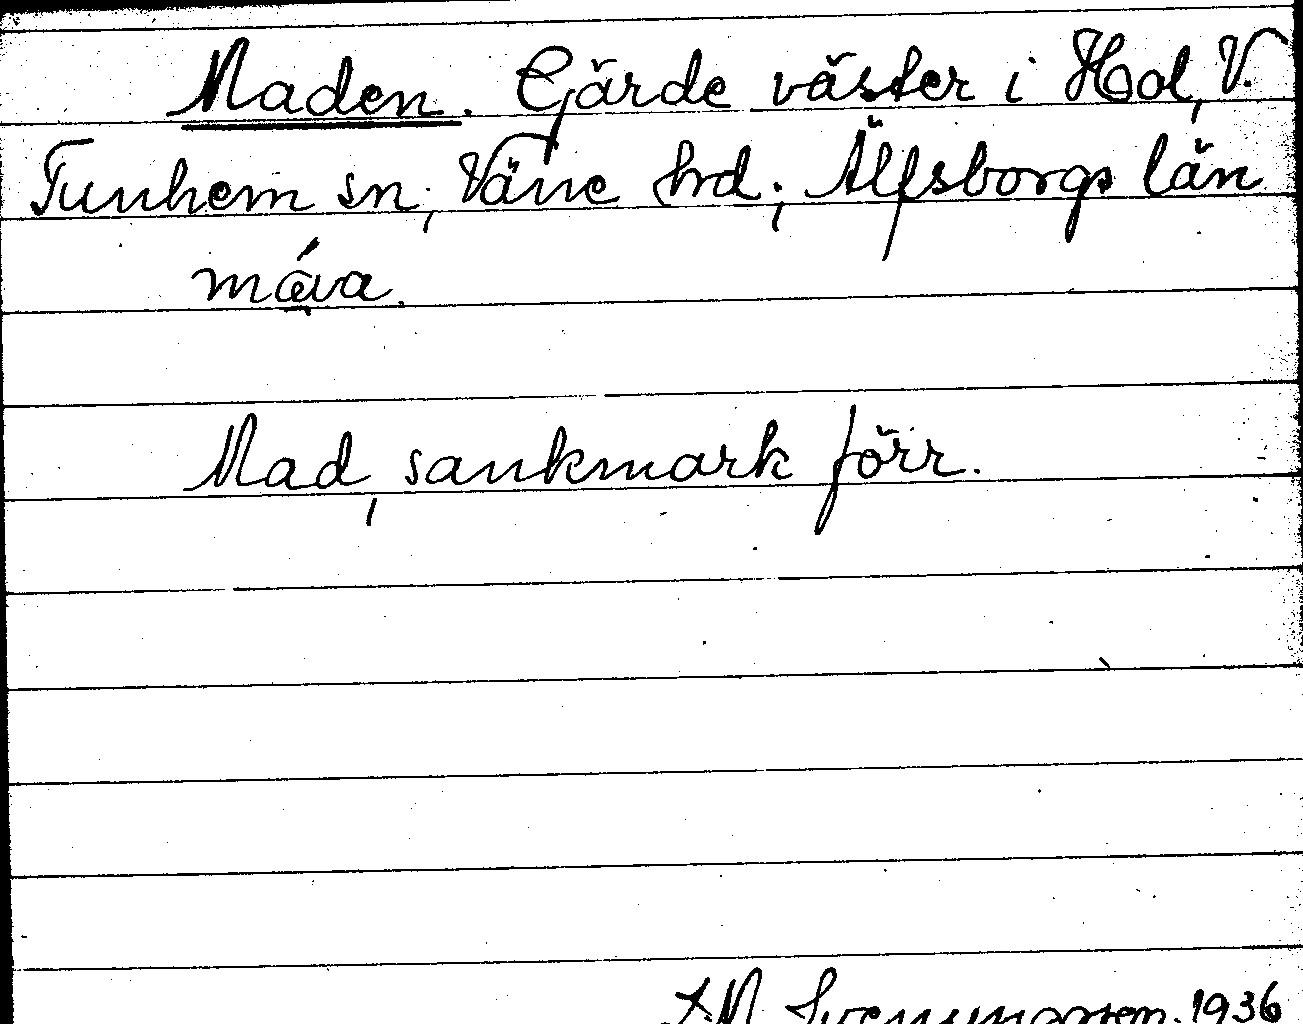 Maden. Gärde väster i Hol, V.
Tunhem sn, Väne hrd; Älfsborgs län
Mad, sankmark förr.
1936